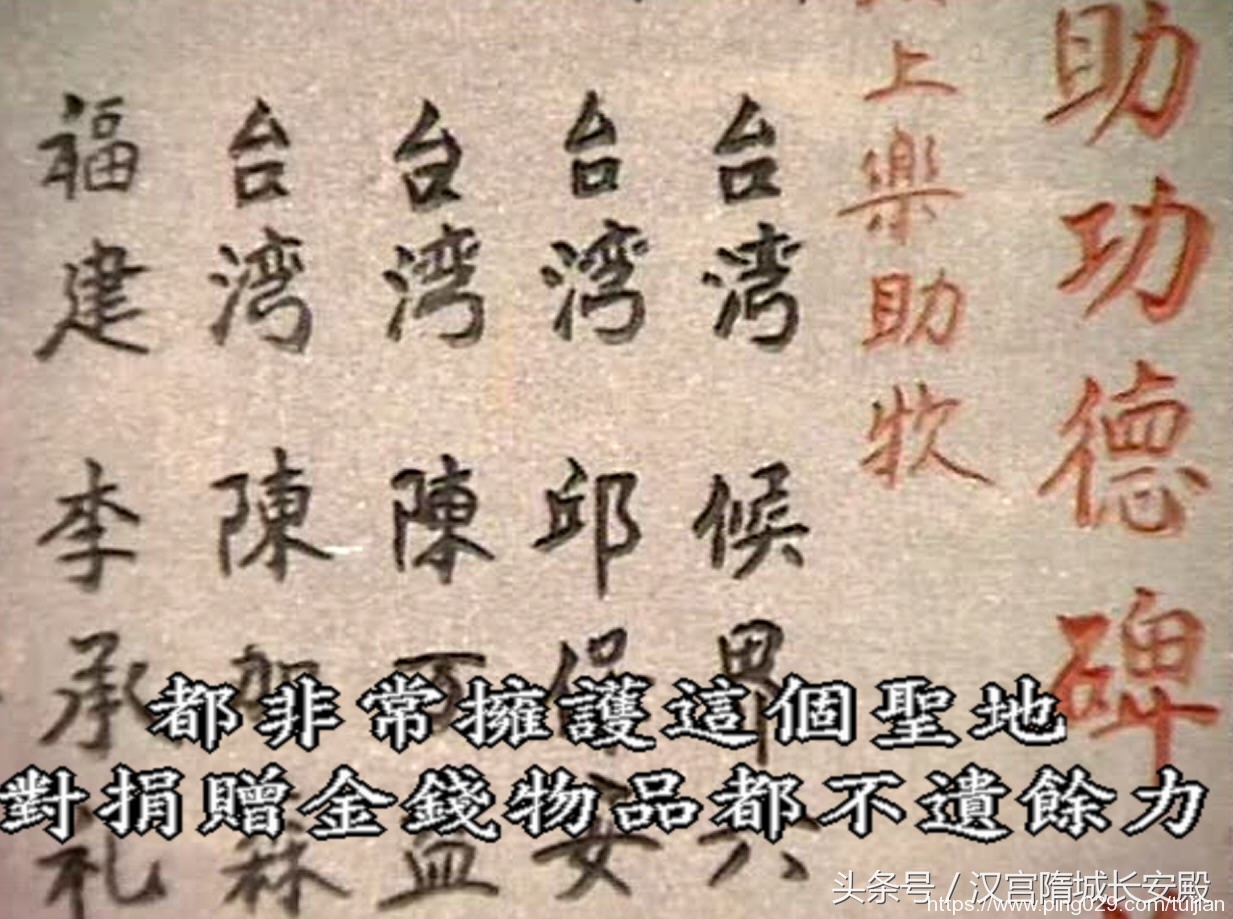 助功德碑
上樂助牧
台湾 候界六
台湾 邱保安
台湾 陳可
台湾 陳加
福建 李承礼
都非常擁護這個聖地
對捐贈金錢物品都不遺餘力
头条号 / 汉宫隋城长安殿
https://www.ping029.com/tujian